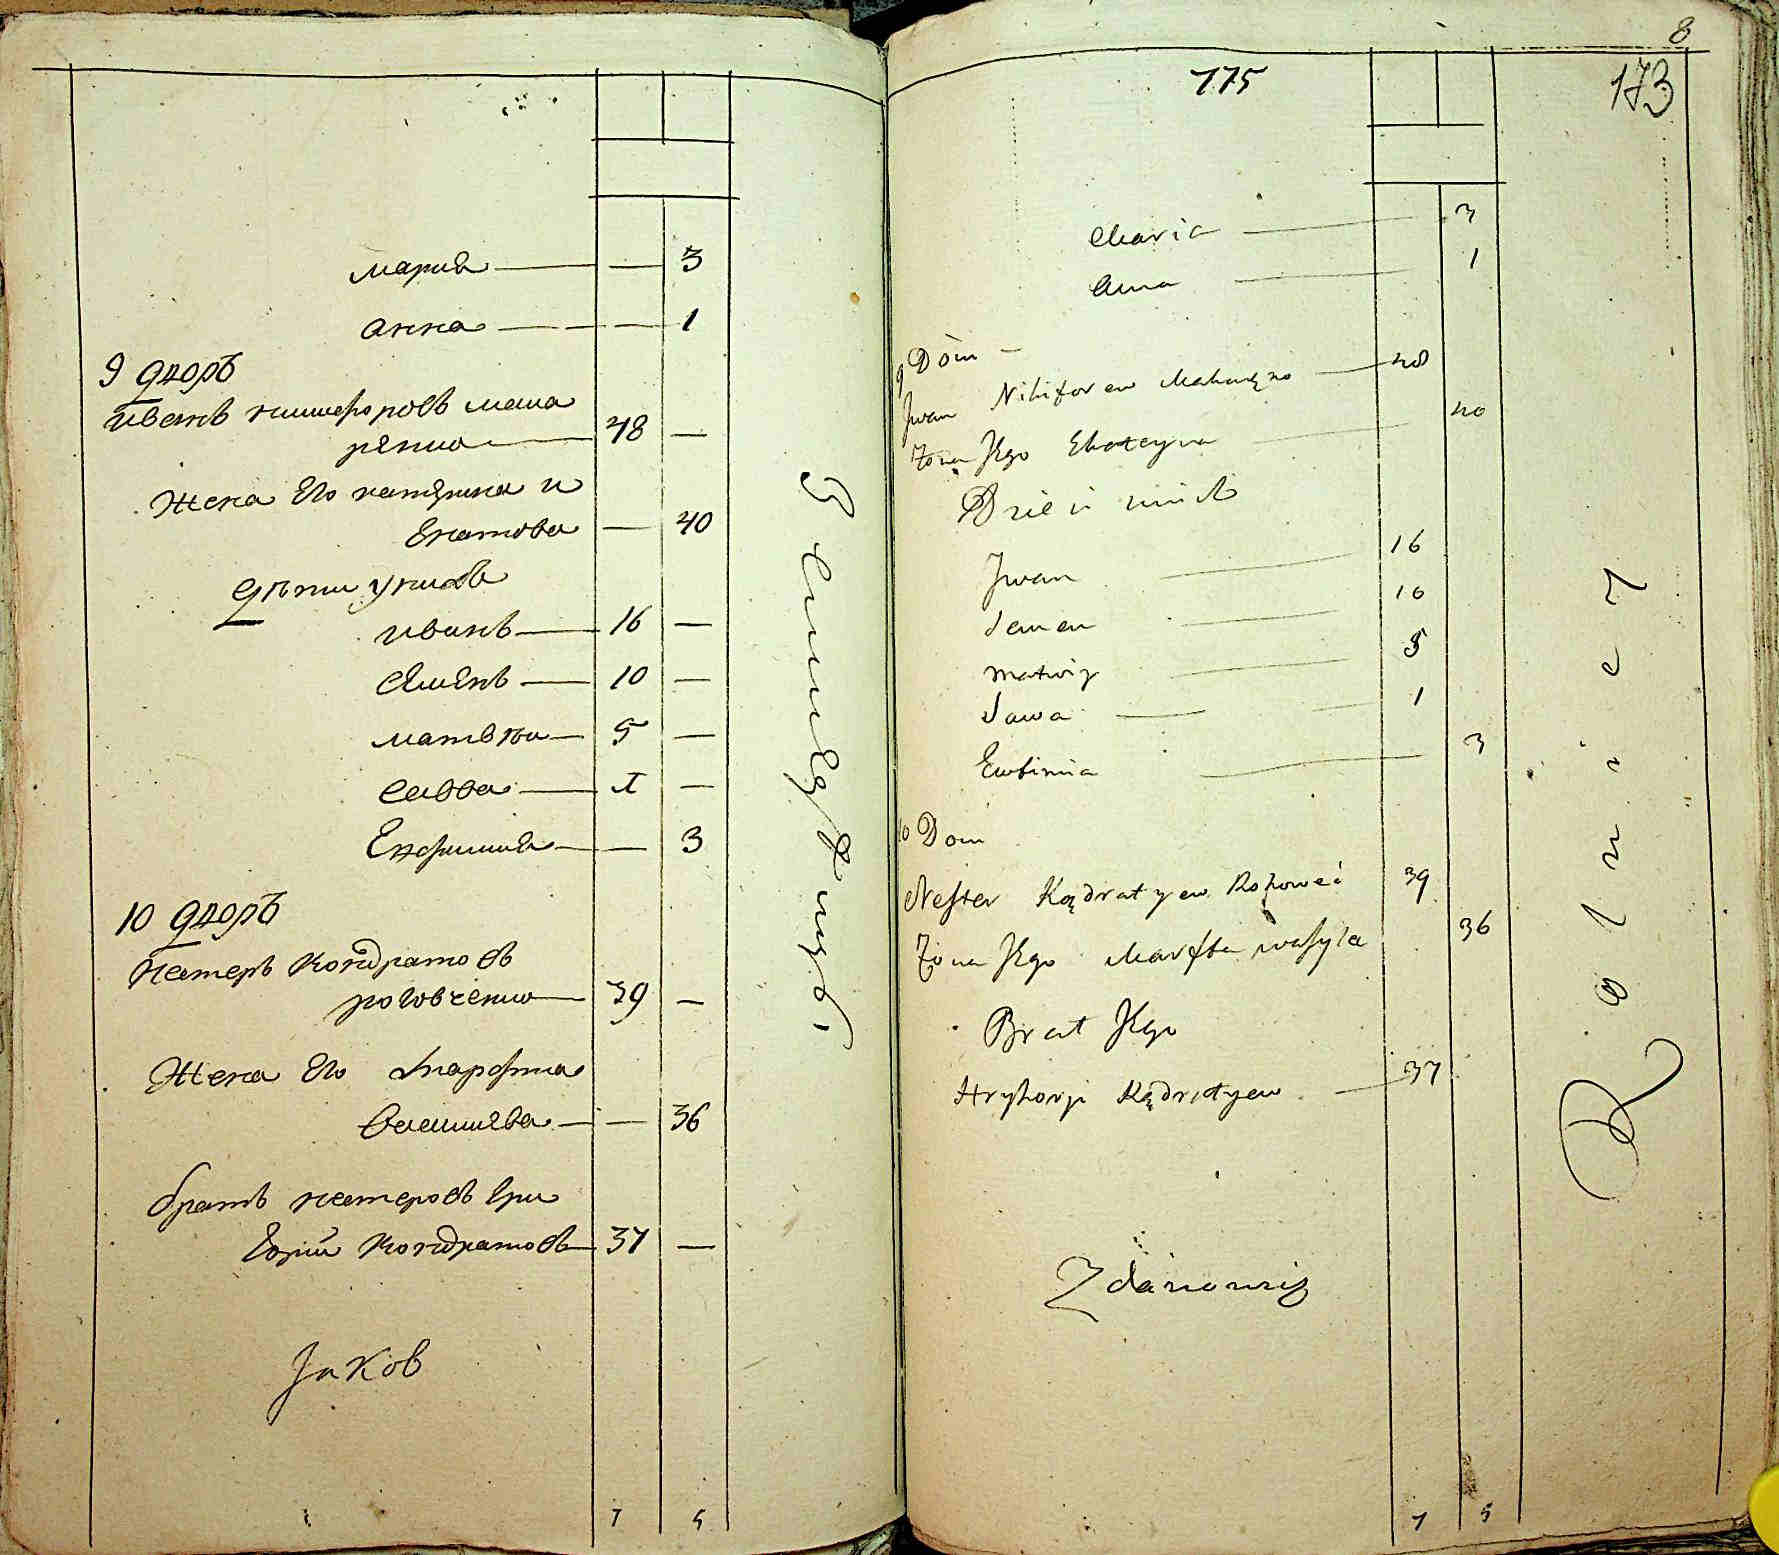 мария — — 3
анна — — 1
9 дворъ
иванъ никифоровъ мака
ренко — 48 —
жена Его катерина и
гнатова — 40
дѣти у нихъ
иванъ — 16 —
семенъ — 10 —
матвѣи — 5 —
савва — 1 —
Евфимия — — 3
10 дворъ
нестеръ кондратовъ
роговченко — 39 —
жена Его марфа
василева — — 36
братъ нестеровъ гри
горий кондратовъ — 37 —
Jakob
7 5
8
175
173
Maria — 3
Anna — 1
9 Dom —
Jwan Nikiforew Makaręko — 48
Żona Jego Ekateryna — 40
Dzieci nich
Jwan — 16
Semen — 10
Matwiy — 5
Sawa — 1
Ewfimia — 3
10 Dom
Nester Kądratyew Rohoweć 39
Żona Jego Marfta wasyla 36
Brat Jego
Hryhoryi Kądratyew — 37
Zdanowicz
7 5
Rolniey